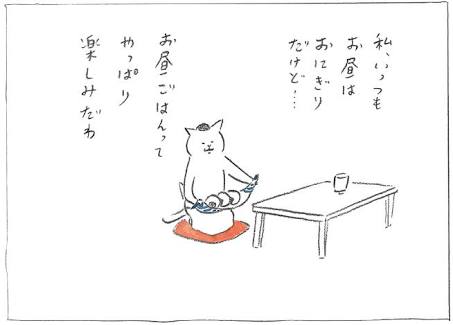 私、いつも
お昼は
おにぎり
だけど…
お昼ごはんって
やっぱり
楽しみだわ